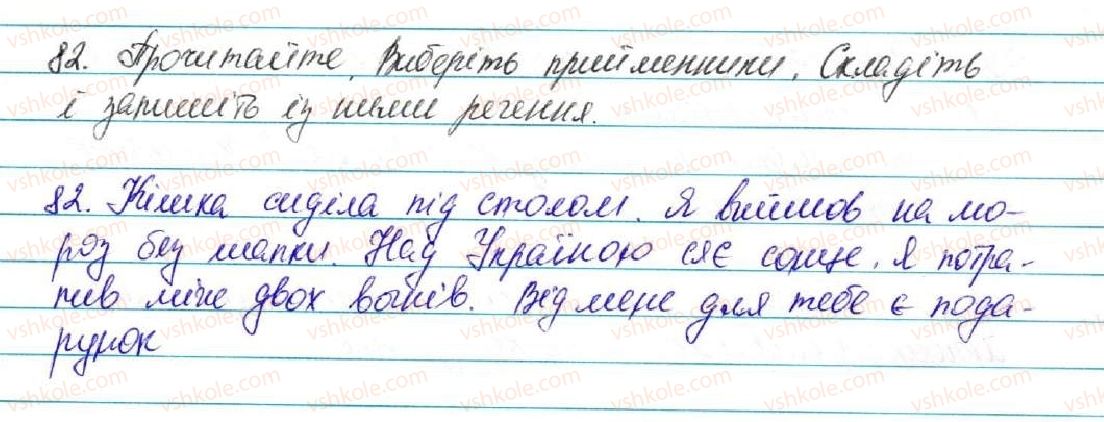 82. Прочитайте. Виберіть прийменники. Складіть
і запишіть із ними речення.
82. Кішка сиділа під столом. Я вийшов на мо-
роз без шапки. Над Україною сяє сонце. Я потра-
пив між двох вогнів. Від мене для тебе є пода-
рунок